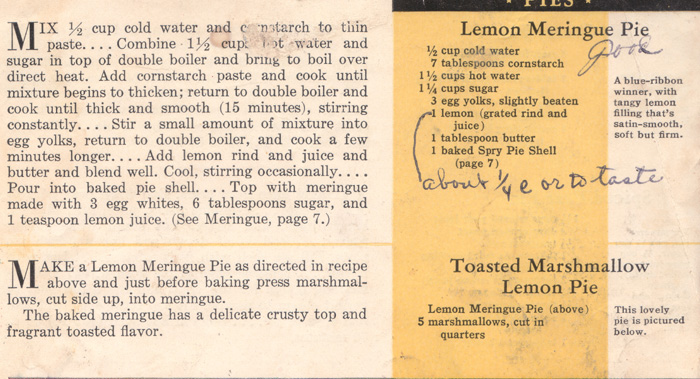 · PIES ·
MIX ½ cup cold water and cornstarch to thin
paste.... Combine 1½ cups hot water and
sugar in top of double boiler and bring to boil over
direct heat. Add cornstarch paste and cook until
mixture begins to thicken; return to double boiler and
cook until thick and smooth (15 minutes), stirring
constantly.... Stir a small amount of mixture into
egg yolks, return to double boiler, and cook a few
minutes longer.... Add lemon rind and juice and
butter and blend well. Cool, stirring occasionally....
Pour into baked pie shell.... Top with meringue
made with 3 egg whites, 6 tablespoons sugar, and
1 teaspoon lemon juice. (See Meringue, page 7.)
Lemon Meringue Pie
Good
½ cup cold water
7 tablespoons cornstarch
1½ cups hot water
1¼ cups sugar
3 egg yolks, slightly beaten
1 lemon (grated rind and
juice)
1 tablespoon butter
1 baked Spry Pie Shell
(page 7)
about ¼ c or to taste
A blue-ribbon
winner, with
tangy lemon
filling that's
satin-smooth,
soft but firm.
MAKE a Lemon Meringue Pie as directed in recipe
above and just before baking press marshmal-
lows, cut side up, into meringue.
The baked meringue has a delicate crusty top and
fragrant toasted flavor.
Toasted Marshmallow
Lemon Pie
Lemon Meringue Pie (above)
5 marshmallows, cut in
quarters
This lovely
pie is pictured
below.